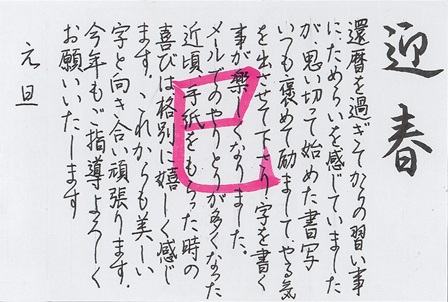 迎春
還暦を過ぎてからの習い事
にためらいを感じていました
が思い切って始めた書写
いつも褒めて励ましてやる気
を出させて下さり字を書く
事が楽しくなりました。
メールでのやりとりが多くなった
近頃、手紙をもらった時の
喜びは格別に嬉しく感じ
ます。これからも美しい
字と向き合い頑張ります。
今年もご指導よろしく
お願いいたします
元旦
巳